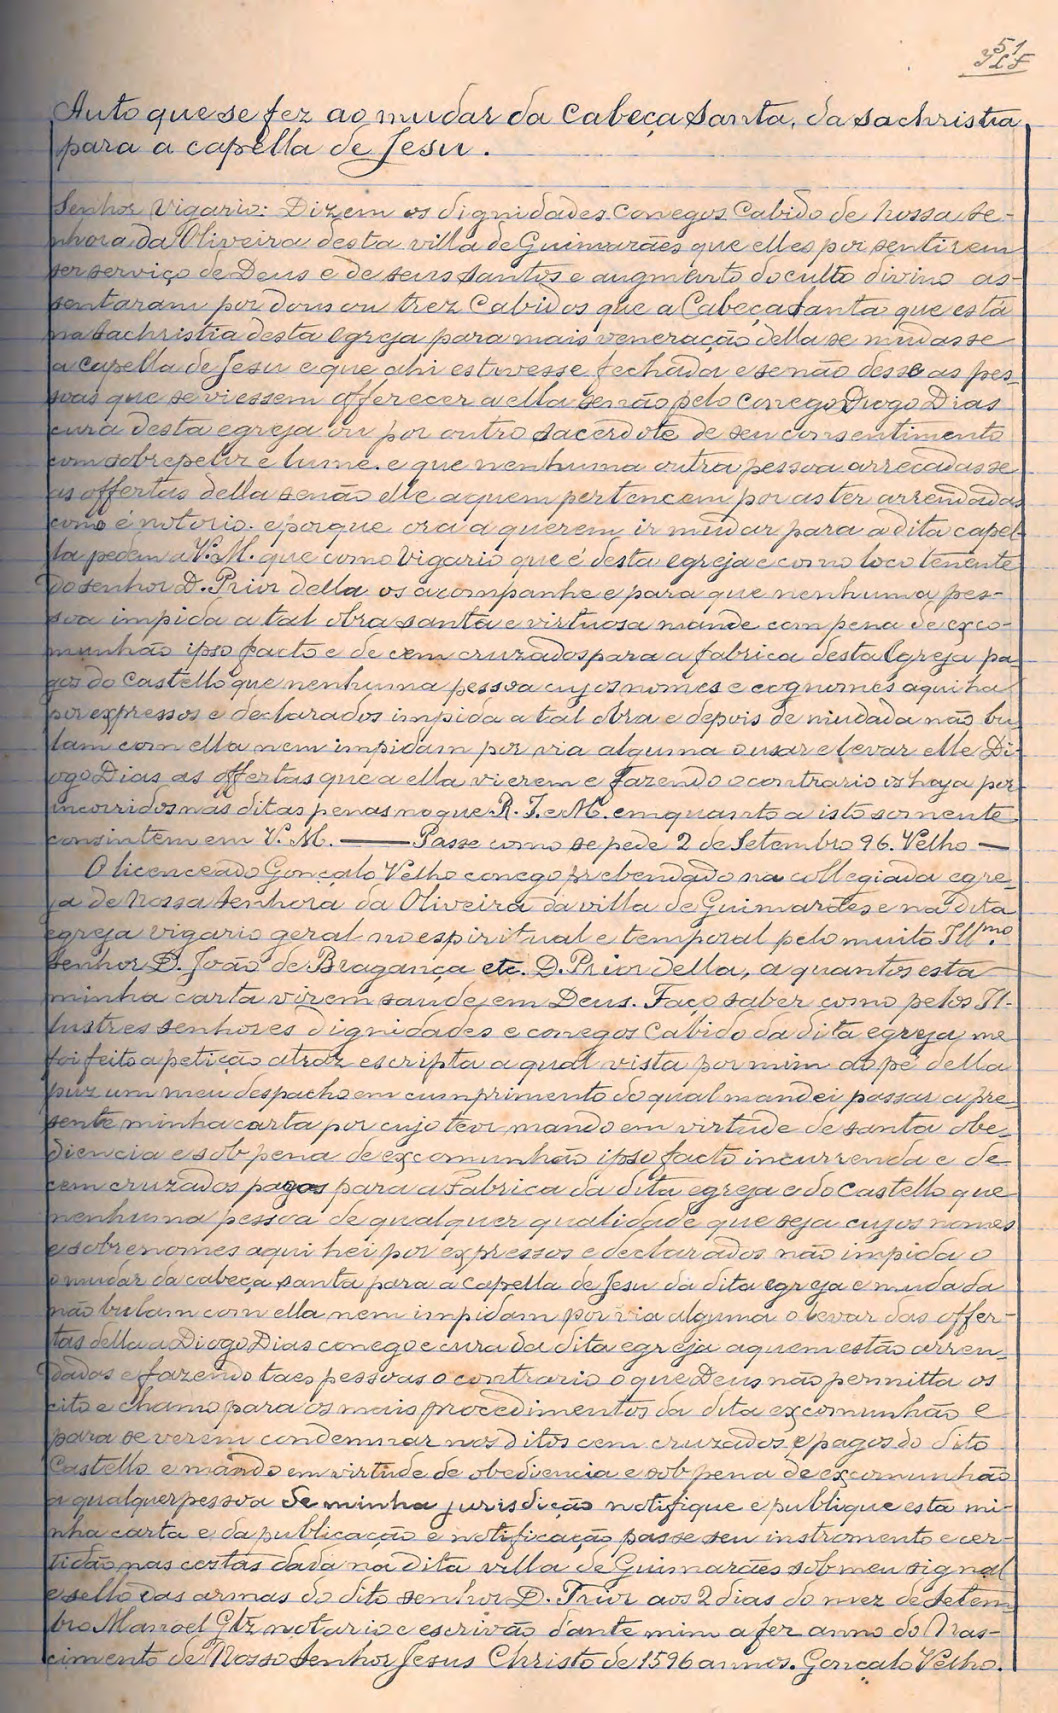 51
Auto que se fez ao mudar da Cabeça Santa, da sachristia
para a capella de Jesu.
Senhor Vigario: Dizem os dignidades conegos Cabido de nossa Se-
nhora da Oliveira desta villa de Guimarães que elles por sentirem
ser serviço de Deus e de seus santos e augmento do culto divino as-
sentaram por dous ou trez Cabidos que a Cabeça Santa que está
na Sachristia desta Egreja para mais veneração della se mudasse
a Capella de Jesu e que ahi estivesse fechada e se não desse as pes-
soas que se viessem offerecer a ella senão pelo Conego Diogo Dias
cura desta egreja ou por outro sacerdote de seu consentimento
com sobrepeliz e lume. e que nenhuma outra pessoa arrecadasse
as offertas della senão elle a quem pertencem por as ter arrendadas
como é notorio. e porque ora a querem ir mudar para a dita capel-
la pedem a V. M. que como Vigario que é desta egreja e como loco tenente
do senhor D. Prior della os acompanhe e para que nenhuma pes-
soa impida a tal obra santa e virtuosa mande com pena de exco-
munhão ipso facto e de cem cruzados para a fabrica desta Igreja pa-
gos do Castello que nenhuma pessoa cujos nomes e cognomes aqui ha
por expressos e declarados impida a tal obra e depois de mudada não bu-
lam com ella nem impidam por via alguma o usar e levar elle Di-
ogo Dias as offertas que a ella vierem e fazendo o contrario os haja por
incorridos nas ditas penas no que R. J. e M. emquanto a isto somente
consintem em V. M. — Passe como se pede 2 de Setembro 96. Velho —
O licenceado Gonçalo Velho conego prebendado na collegiada egre-
ja de Nossa Senhora da Oliveira da villa de Guimarães e na dita
egreja vigario geral no espiritual e temporal pelo muito Illmo.
Senhor D. João de Bragança etc. D. Prior della, a quantos esta
minha carta virem saude em Deus. Faço saber como pelos Il-
lustres senhores dignidades e conegos Cabido da dita egreja me
foi feito a petição atraz escripta a qual vista por mim ao pé della
puz um meu despacho em cumprimento do qual mandei passar a pre-
sente minha carta por cujo teor mando em virtude de santa obe-
diencia e sob pena de excomunhão ipso facto incurrenda e de
cem cruzados pagos para a Fabrica da dita egreja e do Castello que
nenhuma pessoa de qualquer qualidade que seja cujos nomes
e sobrenomes aqui hei por expressos e declarados não impida o
o mudar da cabeça santa para a capella de Jesu da dita egreja e mudada
não bulam com ella nem impidam por via alguma o levar das offer-
tas della a Diogo Dias conego e cura da dita egreja a quem estão arren-
dadas e fazendo taes pessoas o contrario o que Deus não permitta os
cito e chamo para os mais procedimentos da dita excomunhão e
para se verem condemnar nos ditos cem cruzados e pagos do dito
Castello e mando em virtude de obediencia e sob pena de excomunhão
a qualquer pessoa de minha jurisdição notifique e publique esta mi-
nha carta e da publicação e notificação passe seu instromento e cer-
tidão nas costas dada na dita villa de Guimarães sob meu signal
e sello das armas do dito senhor D. Prior aos 2 dias do mez de Setem-
bro Manoel Glz notario e escrivão dante mim a fez anno do Nas-
cimento de Nosso Senhor Jesus Christo de 1596 annos. Gonçalo Velho.